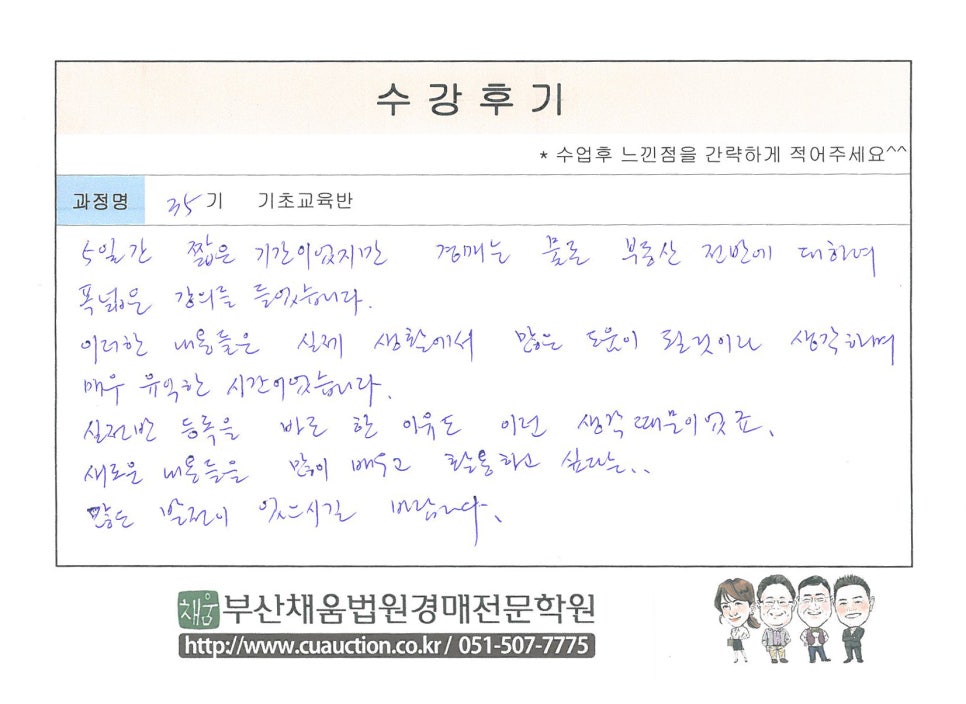 수강후기
* 수업후 느낀점을 간략하게 적어주세요^^
과정명 35기 기초교육반
5일간 짧은 기간이었지만 경매는 물론 부동산 전반에 대하여
폭넓은 강의를 들었습니다.
이러한 내용들은 실제 생활에서 많은 도움이 될것이라 생각하며
매우 유익한 시간이었습니다.
실전반 등록을 바로 한 이유도 이런 생각 때문이었죠.
새로운 내용들을 많이 배우고 활용하고 싶다는..
많은 발전이 있으시길 바랍니다.
채움 부산채움법원경매전문학원
http://www.cuauction.co.kr/ 051-507-7775